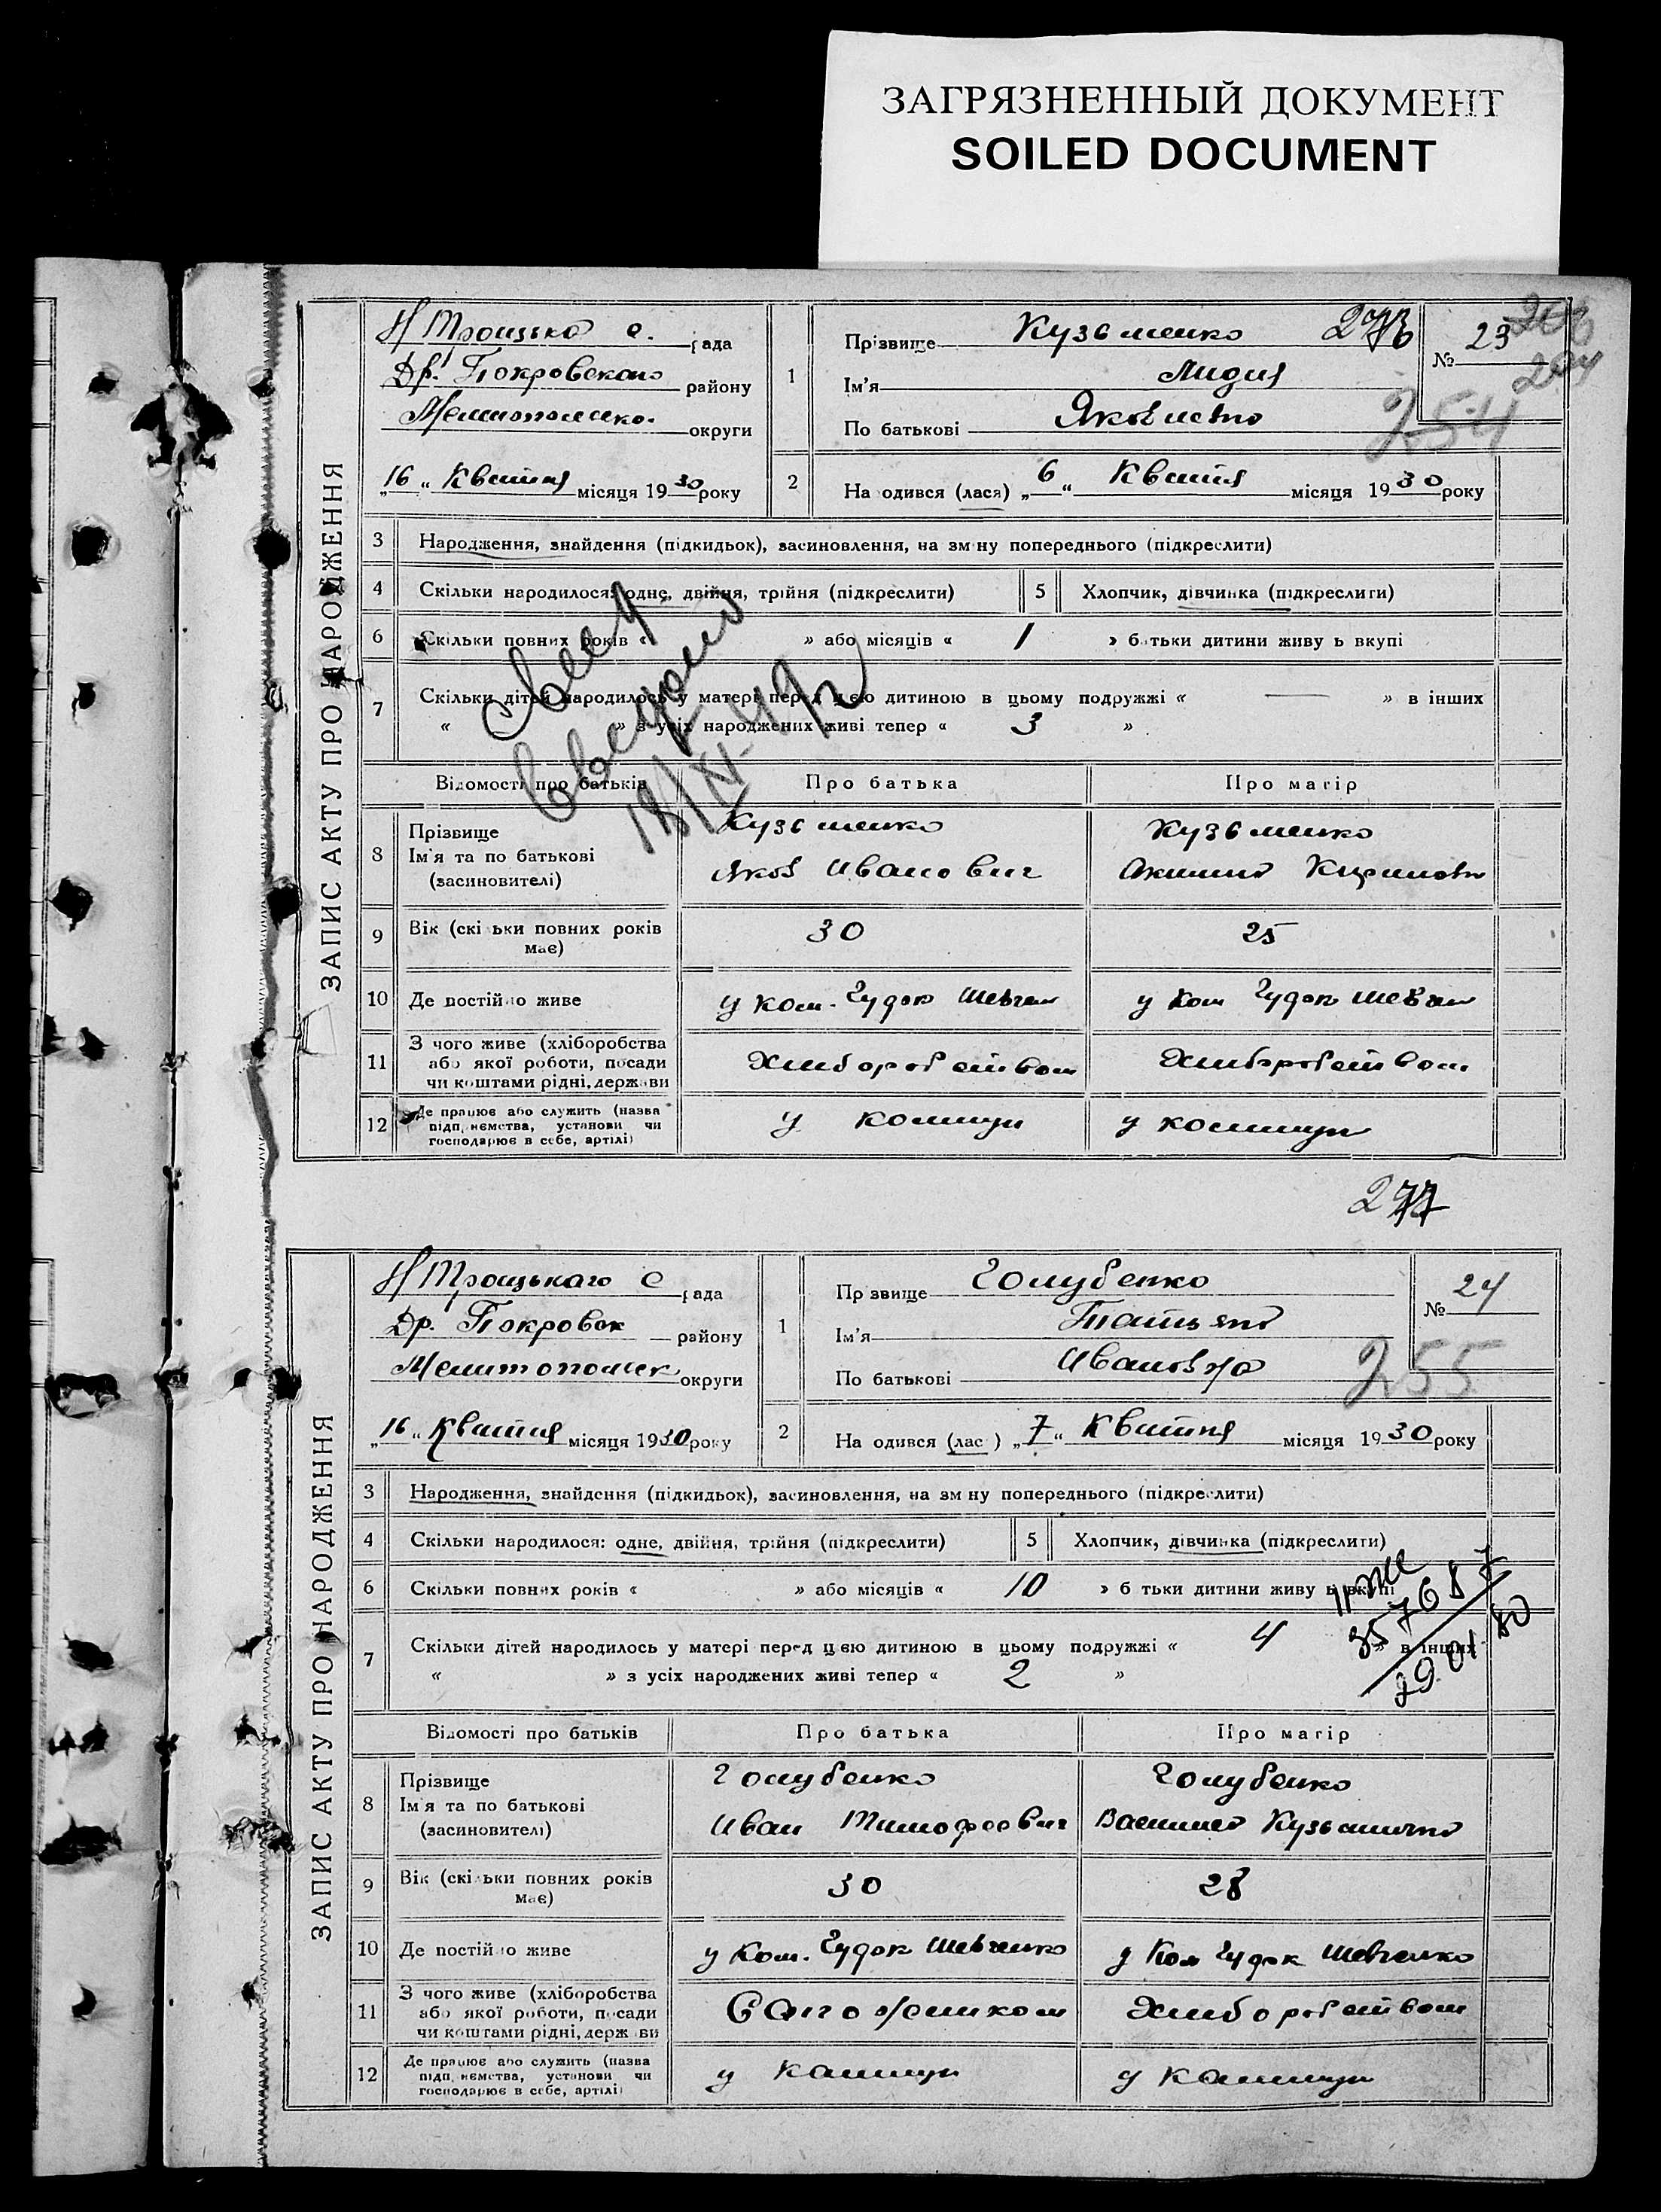 ЗАГРЯЗНЕННЫЙ ДОКУМЕНТ
SOILED DOCUMENT
ЗАПИС АКТУ ПРО НАРОДЖЕННЯ
Н Троицько с. рада
Др. Покровского району
округи
„16“ Квітня місяця 1930 року
1
Прізвище Кузьменко
Ім'я Лидия
По батькові Яковлевно
№ 23
254
2
На одився (лася) „6“ Квітня місяця 1930 року
3 Народження, знайдення (підкидьок), засиновлення, на зміну попереднього (підкреслити)
4 Скільки народилося: одне, двійня, трійня (підкреслити) 5 Хлопчик, дівчинка (підкреслити)
6 Скільки повних років « » або місяців « 1 » батьки дитини живуть вкупі
7 Скільки дітей народилось у матері перед цією дитиною в цьому подружжі « — » в інших
« » з усіх народжених живі тепер « 3 »
Відомості про батьків Про батька Про матір
8 Прізвище
Ім'я та по батькові
(засиновителі)
Кузьменко
Яков Иванович
Кузьменко
9 Вік (скільки повних років має) 30 25
10 Де постійно живе у ком. Чудок Шевчен у Ком Чудок Шевчен
11 З чого живе (хліборобства
або якої роботи, посади
чи коштами рідні, держави
Хлиборобством Хлиборобством
12 Де працює або служить (назва
підприємства, установи чи
господарює в себе, артілі)
у коммуни у коммуни
277
ЗАПИС АКТУ ПРО НАРОДЖЕННЯ
Н Троцького с рада
Др. Покровск району
Мелитопольск округи
„16“ Квітня місяця 1930 року
1
Пр звище Голубенко
Ім'я Татьяно
По батькові Ивановна
№ 24
255
2
На одився (лас ) „7“ Квітня місяця 1930 року
3 Народження, знайдення (підкидьок), засиновлення, на зм ну попереднього (підкреслити)
4 Скільки народилося: одне, двійня, трійня (підкреслити) 5 Хлопчик, дівчинка (підкреслити)
6 Скільки повних років « » або місяців « 10 » б тьки дитини живу ь вкупі
7 Скільки дітей народилось у матері перед цією дитиною в цьому подружжі « 4 » в інших
« » з усіх народжених живі тепер « 2 »
29 01 80
Відомості про батьків Про батька Про матір
8 Прізвище
Ім'я та по батькові
(засиновителі)
Голубенко
Иван Тимофеевич
Голубенко
Василиса Кузьминично
9 Вік (скільки повних років має) 30 28
10 Де постійно живе у Ком. Чудок Шевченко у Ком Чудок Шевченко
11 З чого живе (хліборобства
або якої роботи, посади
чи коштами рідні, держ ви
Сапожником Хлиборобством
12 Де працює або служить (назва
підприємства, установи чи
господарює в себе, артілі)
у каммуни у каммуни